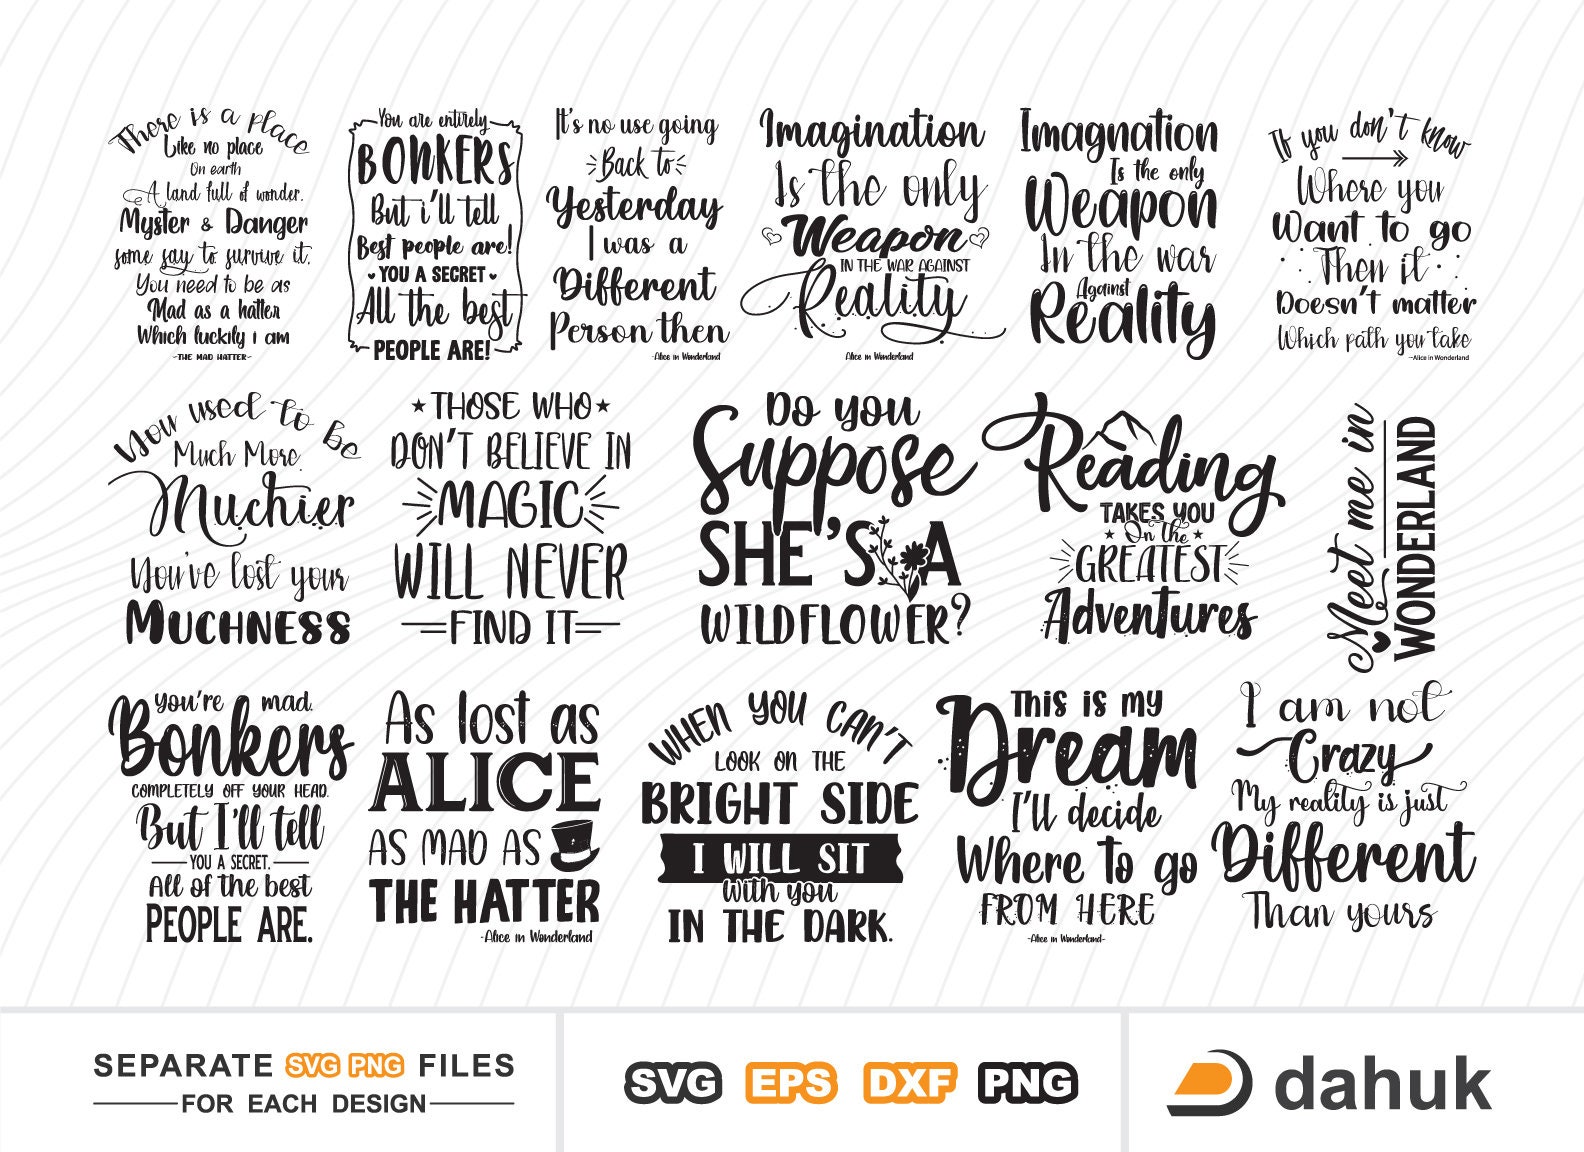 There is a place
Like no place
On earth
A land full of wonder.
Myster & Danger
some say to survive it,
You need to be as
Mad as a hatter
Which luckily i am
~THE MAD HATTER~
You are entirely
BONKERS
But i'll tell
Best people are!
YOU A SECRET
All the best
PEOPLE ARE!
It's no use going
Back to
Yesterday
I was a
Different
Person then
-Alice in Wonderland
Imagination
Is the only
Weapon
IN THE WAR AGAINST
Reality
Alice in Wonderland
Imagnation
Is the only
Weapon
In the war
Against
Reality
If you don't know
Where you
Want to go
Then it
Doesn't matter
Which path you take
~Alice in Wonderland
You used to be
Much More.
Muchier
You've lost your
MUCHNESS
THOSE WHO
DON'T BELIEVE IN
MAGIC
WILL NEVER
FIND IT
Do you
Suppose
SHE'S A
WILDFLOWER?
Reading
TAKES YOU
On the
GREATEST
Adventures
Meet me in
WONDERLAND
you're mad.
Bonkers
COMPLETELY OFF YOUR HEAD.
But I'll tell
YOU A SECRET.
All of the best
PEOPLE ARE.
As lost as
ALICE
AS MAD AS
THE HATTER
-Alice in Wonderland
WHEN YOU CAN'T
LOOK ON THE
BRIGHT SIDE
I WILL SIT
with you
IN THE DARK.
This is my
Dream
I'll decide
Where to go
FROM HERE
-Alice in Wonderland-
I am not
Crazy
My reality is just
Different
Than yours
SEPARATE SVG PNG FILES
FOR EACH DESIGN
SVG EPS DXF PNG
dahuk